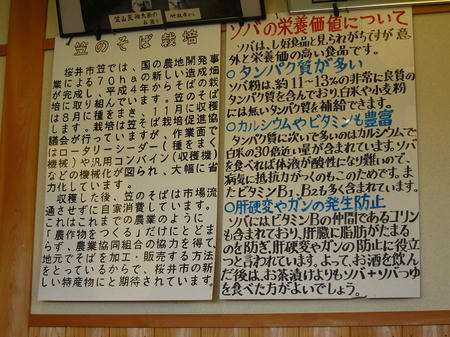 笠のそば栽培
桜井市笠では、国の農地開発事
業による70haの新しい造成畑
が完成し、平成4年からそばの栽
培に取り組んでいます。笠のそば
は8月に種をまき、11月に収穫
します。栽培は笠そば栽培促進協
議会が行っていますが、作業面で
はロータリーシーダー(種をまく
機械)や汎用コンバイン(収穫機)
などの機械化が図られ、大幅に省
力化しています。
収穫した後、笠のそばは市場流
通させずに自家消費しています。
これはこれまでの農業のように
「農作物をつくる」だけにとどま
らず、農業協同組合の協力を得て、
地元でそばを加工・販売する方法
をとっているからで、桜井市の新
しい特産物にと期待されています。
ソバの栄養価値について
ソバは、し好食品と見られがちですが意
外と栄養価の高い食品です。
○タンパク質が多い
ソバ粉は、約11〜13%の非常に良質の
タンパク質を含んでおり、白米や小麦粉
には無いタンパク質を補給できます。
○カルシウムやビタミンも豊富
タンパク質に次いで多いのはカルシウムで、
白米の30倍近い量が含まれています。ソバ
を食べれば体液が酸性になり難いので、
病気に抵抗力がつくのもこのためです。ま
たビタミンB1、B2も多く含まれています。
○肝硬変やガンの発生防止
ソバにはビタミンBの仲間であるコリン
も含まれており、肝臓に脂肪がたまる
のを防ぎ、肝硬変やガンの防止に役立
つと言われています。よって、お酒を飲ん
だ後は、お茶漬けよりもソバ+ソバつゆ
を食べた方がよいでしょう。